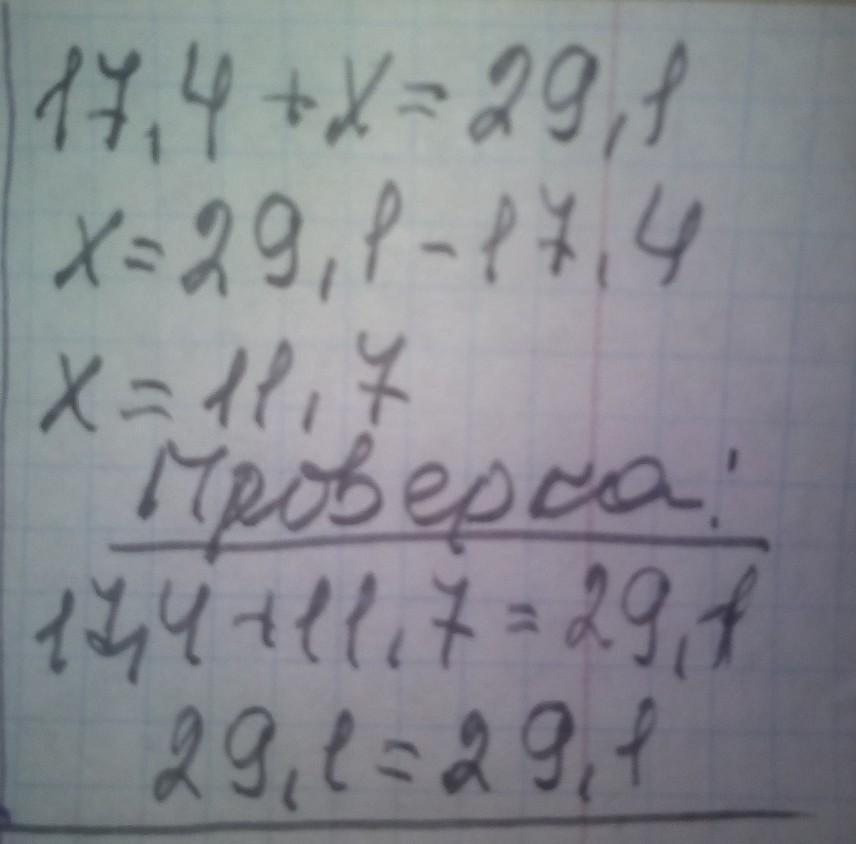 17,4 + x = 29,1
x = 29,1 - 17,4
x = 11,7
Проверка:
17,4 + 11,7 = 29,1
29,1 = 29,1